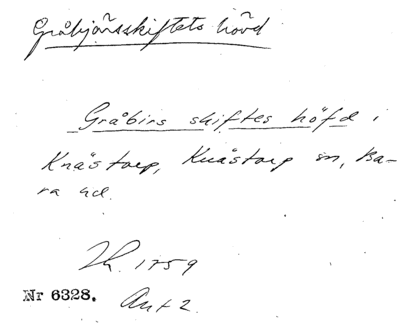 Gråbjörsskiftets hövd
Gråbirs skiftes höfd i
Knästorp, Knästorp sn, Ba-
ra hd.
Th. 1759
Nr 6328. Akt 2.